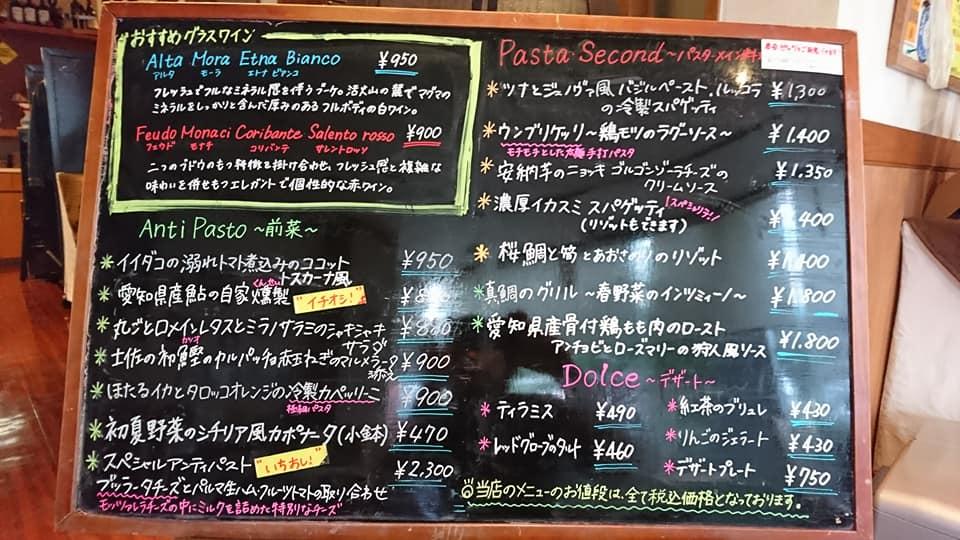 おすすめグラスワイン
Alta Mora Etna Bianco ¥950
アルタ モーラ エトナ ビアンコ
フレッシュでフルなミネラル感を伴うブーケ。活火山の麓でマグマの
ミネラルをしっかりと含んだ厚みのあるフルボディの白ワイン。
Feudo Monaci Coribante Salento rosso ¥900
フェウド モナチ コリバンテ サレントロッソ
二つのブドウのもつ特徴を掛け合わせ、フレッシュ感と複雑な
味わいを併せもつエレガントで個性的な赤ワイン。
Anti Pasto ~前菜~
*イイダコの溺れトマト煮込みのココット ¥950
トスカーナ風
くんせい
*愛知県産鮎の自家燻製 "イチオシ!"
*丸ごとロメインレタスとミラノサラミのシャキシャキ
サラダ
カツオ
*土佐の初鰹のカルパッチョ赤玉ねぎのマルメラータ ¥900
添え
*ほたるイカとタロッコオレンジの冷製カペッリーニ ¥900
極細パスタ
*初夏野菜のシチリア風カポナータ(小鉢) ¥470
*スペシャルアンティパスト "いちおし!" ¥2,300
ブッラータチーズとパルマ生ハム・フルーツトマトの取り合わせ
モッツァレラチーズの中にミルクを詰めた特別なチーズ
Pasta Second ~パスタ・メイン料
*ツナとジェノヴァ風バジルペースト、ルッコラ ¥1,300
の冷製スパゲッティ
*ウンブリケッリ~鶏モツのラグーソース~ ¥1.400
モチモチとした太麺手打パスタ
*安納芋のニョッキ ゴルゴンゾーラチーズの ¥1.350
クリームソース
*濃厚イカスミ スパゲッティ スペシャリテ!
(リゾットもできます)
*桜鯛と筍とあおさのりのリゾット ¥1,400
*真鯛のグリル ~春野菜のインツィミーノ~ ¥1.800
*愛知県産骨付鶏もも肉のロースト ¥1.800
アンチョビとローズマリーの狩人風ソース
Dolce ~デザート~
*ティラミス ¥490
*レッドグローブのタルト ¥460
*紅茶のブリュレ ¥430
*りんごのジェラート ¥430
*デザートプレート ¥750
◎当店のメニューのお値段は、全て税込価格となっております。